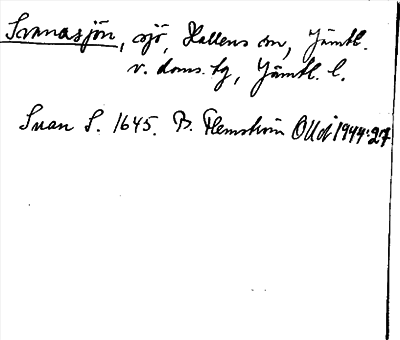 Svanasjön, sjö, Hallens sn, Jämtl.
v. doms. tg, Jämtl. l.
Suan S. 1645. B. Flemström OUÅ 1944:27